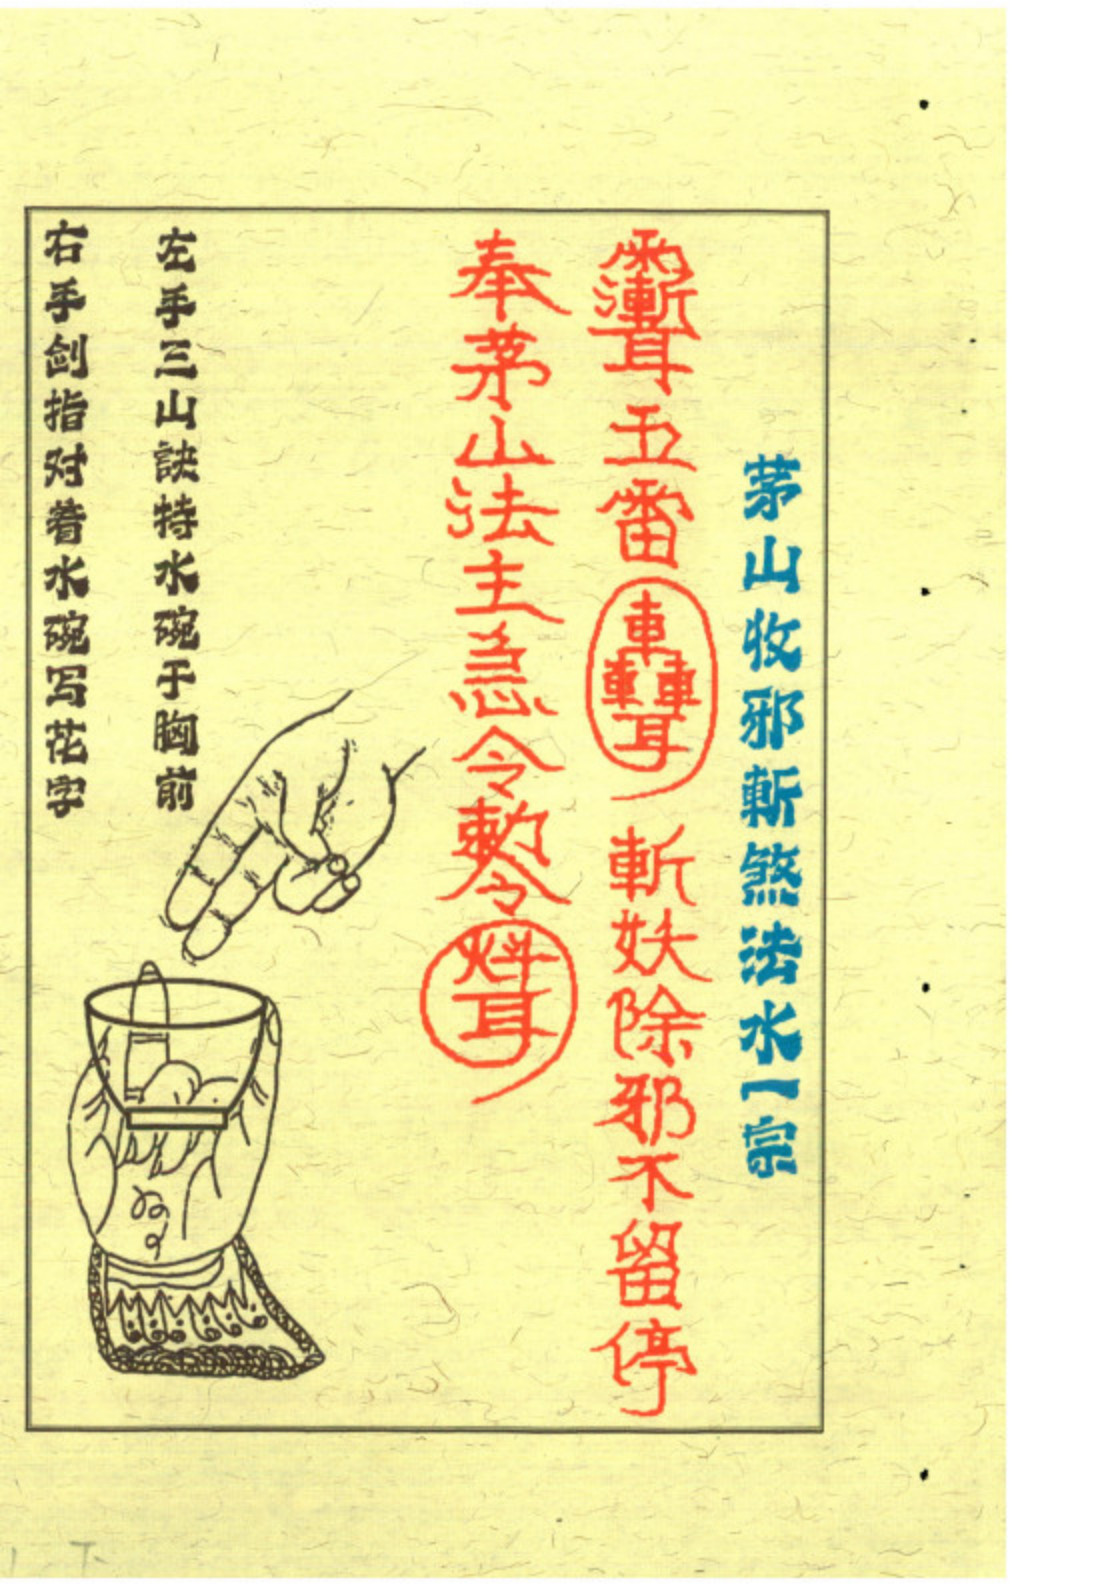 茅山收邪斬煞法水一宗
五雷
斬妖除邪不留停
奉茅山法主急令敕令
左手三山訣特水碗于胸前
右手剑指对着水碗写花字